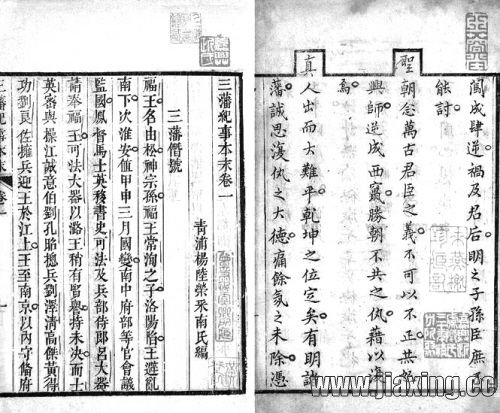 闖成肆逆禍及君后明之子孫臣庶不
能討
聖朝念萬古君臣之義不可以不正共
興師逆成西竄勝朝不共之仇藉以
焉
真人出而大難平乾坤之位定矣有明諸
藩誠思復仇之大德痛餘氛之未除憑
三藩紀事本末卷一
青浦楊陸榮采南氏編
三藩僭號
福王名由崧神宗孫福王常洵之子洛陽陷王避亂
南下次淮安值甲申三月國變南中府部等官會議
監國鳳督馬士英移書史可法及兵部侍郎呂大器
請奉福王可法大器以潞王稍有賢譽持未決而士
英密與操江誠意伯劉孔昭總兵劉澤清高傑黃得
功劉良佐擁兵迎王於江上王至南京以內守備府
三藩紀事本末 卷一
www.jiaxing.cc